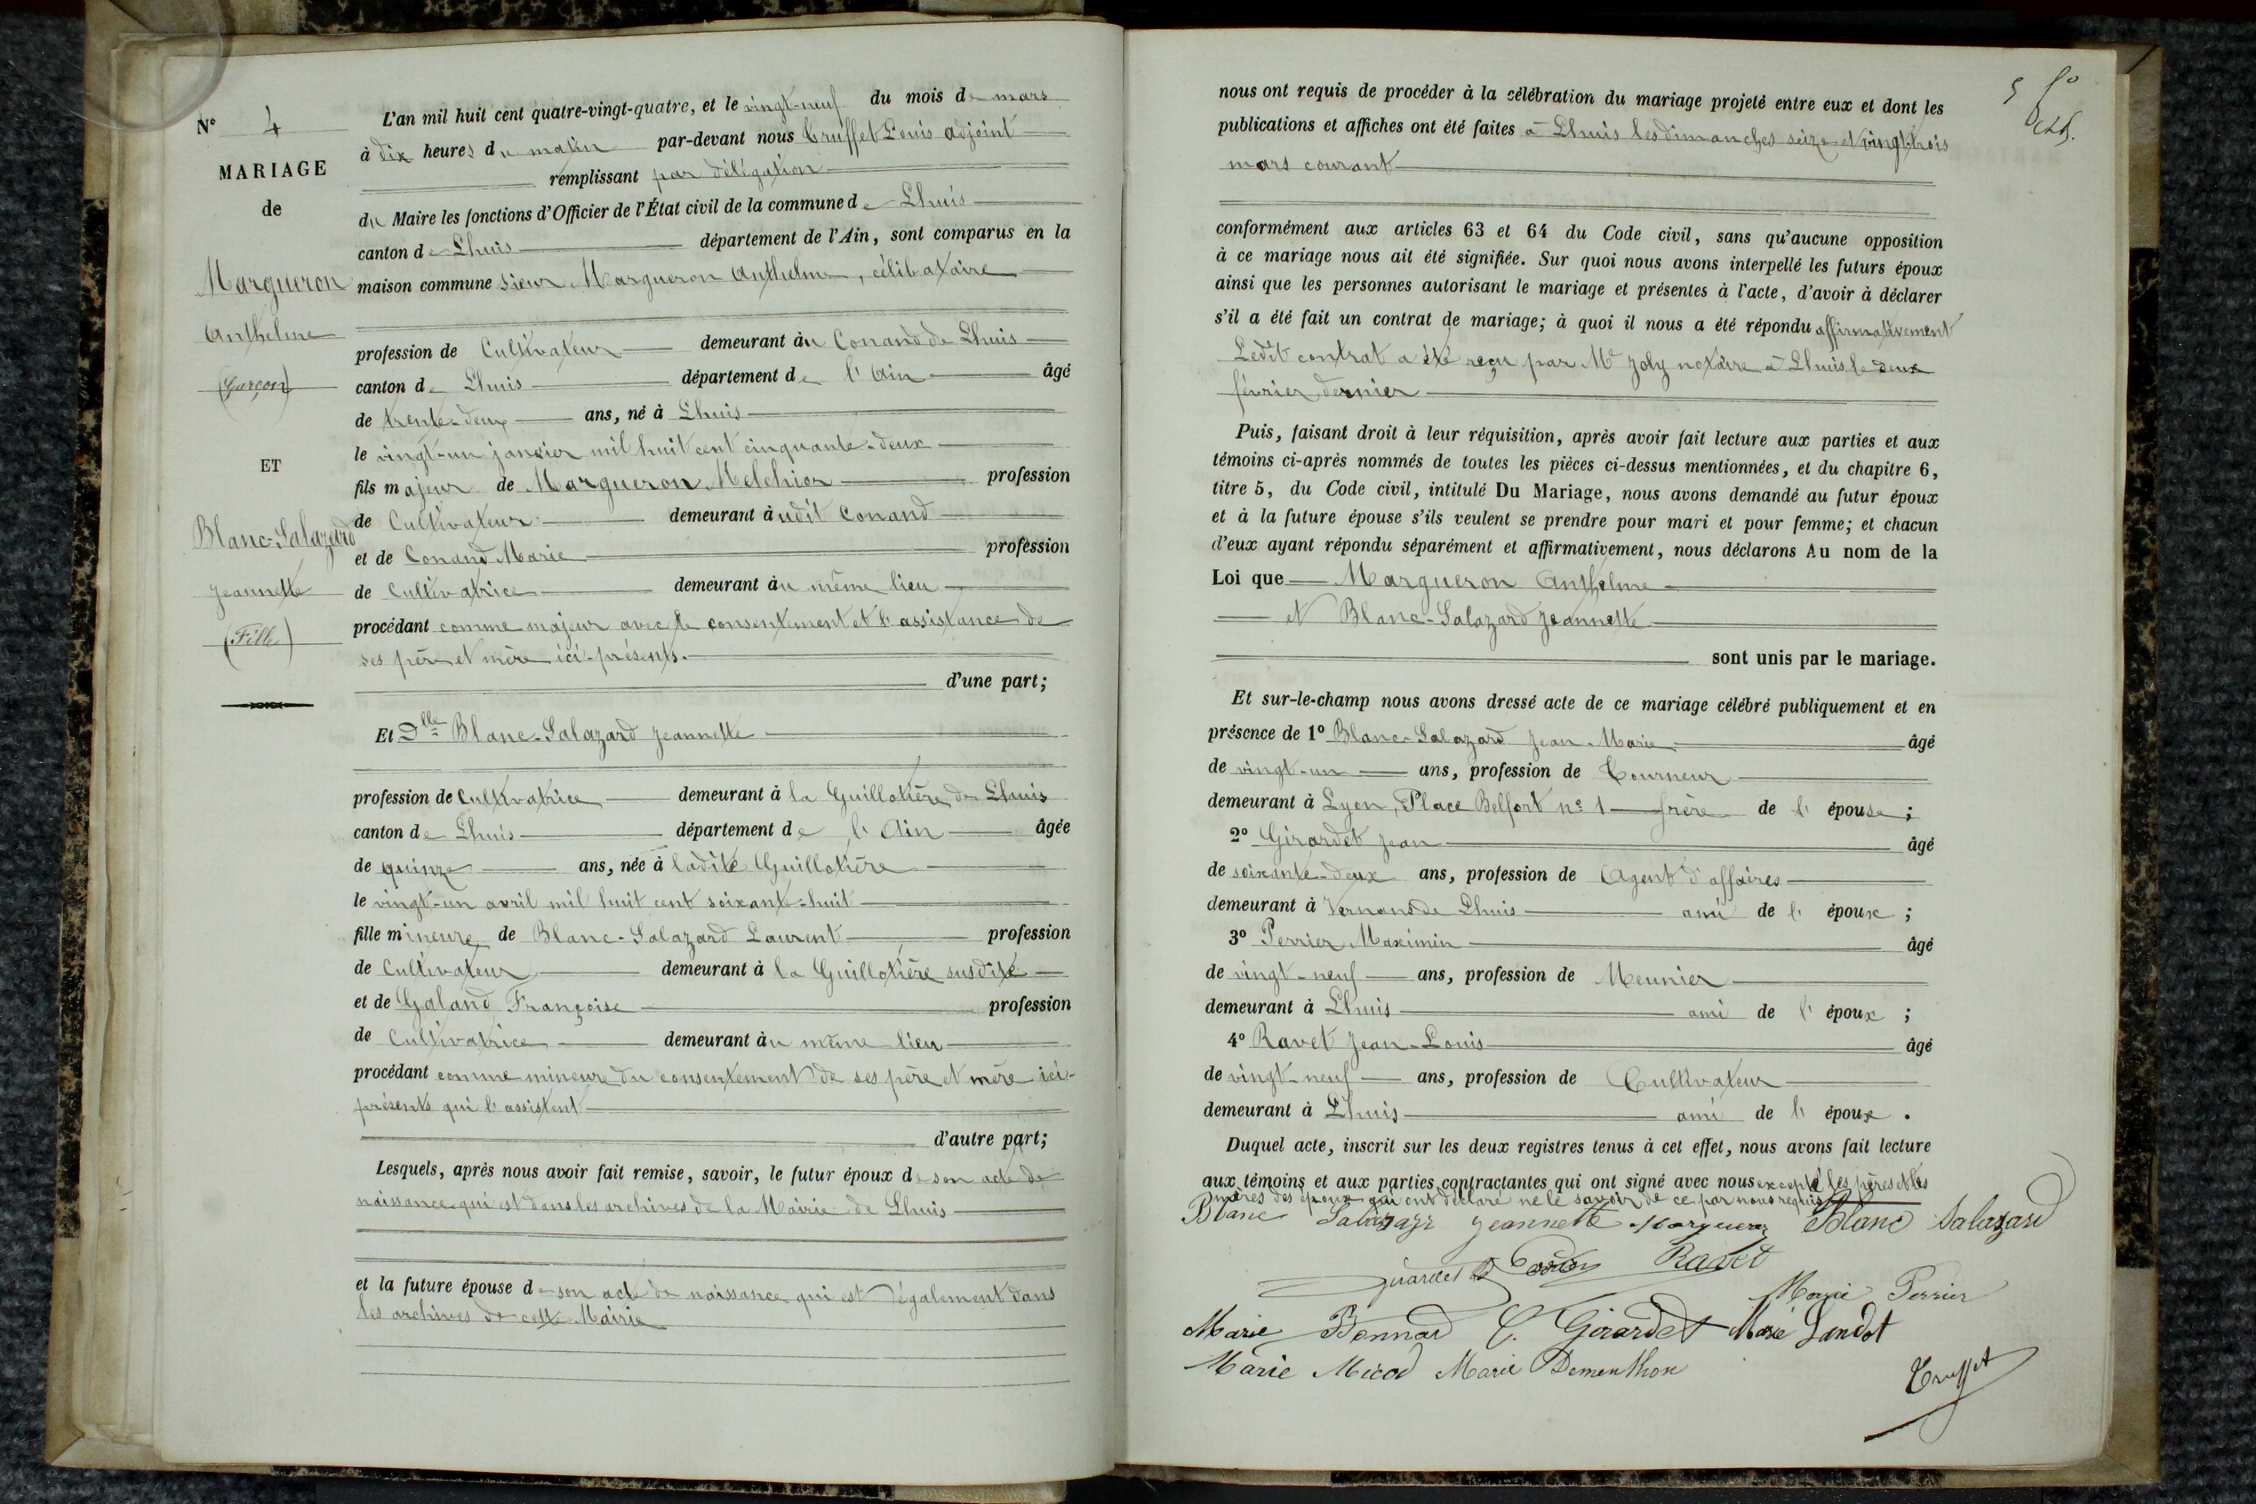 N° 4
MARIAGE
de
Margueron
Anthelme
(Garçon)
ET
Blanc-Salazard
Jeannette
(Fille)
L'an mil huit cent quatre-vingt-quatre, et le vingt-neuf du mois de mars
à dix heures du matin par-devant nous Truffet Louis adjoint
remplissant par délégation
du Maire les fonctions d'Officier de l'État civil de la commune de Lhuis
canton de Lhuis département de l'Ain, sont comparus en la
maison commune sieur Margueron Anthelme, célibataire
profession de Cultivateur demeurant au Conand de Lhuis
canton de Lhuis département de l'Ain âgé
de trente-deux ans, né à Lhuis
le vingt-un janvier mil huit cent cinquante-deux
fils majeur de Margueron Melchior profession
de Cultivateur demeurant audit Conand
et de Conand Marie profession
de Cultivatrice demeurant au même lieu
procédant comme majeur avec le consentement et l'assistance de
ses père et mère ici-présents.
d'une part;
Et Dlle Blanc-Salazard Jeannette
profession de Cultivatrice demeurant à la Guillotière de Lhuis
canton de Lhuis département de l'Ain âgée
de quinze ans, née à ladite Guillotière
le vingt-un avril mil huit cent soixante-huit
fille mineure de Blanc-Salazard Laurent profession
de Cultivateur demeurant à la Guillotière susdite
et de Galand Françoise profession
de Cultivatrice demeurant au même lieu
procédant comme mineure du consentement de ses père et mère ici-
présents qui l'assistent
d'autre part;
Lesquels, après nous avoir fait remise, savoir, le futur époux de son acte de
naissance qui est dans les archives de la Mairie de Lhuis
et la future épouse de son acte de naissance qui est également dans
les archives de cette Mairie
5
nous ont requis de procéder à la célébration du mariage projeté entre eux et dont les
publications et affiches ont été faites à Lhuis les dimanches seize et vingt-trois
mars courant
conformément aux articles 63 et 64 du Code civil, sans qu'aucune opposition
à ce mariage nous ait été signifiée. Sur quoi nous avons interpellé les futurs époux
ainsi que les personnes autorisant le mariage et présentes à l'acte, d'avoir à déclarer
s'il a été fait un contrat de mariage; à quoi il nous a été répondu affirmativement
Ledit contrat a été reçu par Me Joly notaire à Lhuis le deux
février dernier
Puis, faisant droit à leur réquisition, après avoir fait lecture aux parties et aux
témoins ci-après nommés de toutes les pièces ci-dessus mentionnées, et du chapitre 6,
titre 5, du Code civil, intitulé Du Mariage, nous avons demandé au futur époux
et à la future épouse s'ils veulent se prendre pour mari et pour femme; et chacun
d'eux ayant répondu séparément et affirmativement, nous déclarons Au nom de la
Loi que Margueron Anthelme
et Blanc-Salazard Jeannette
sont unis par le mariage.
Et sur-le-champ nous avons dressé acte de ce mariage célébré publiquement et en
présence de 1° Blanc-Salazard Jean-Marie âgé
de vingt-un ans, profession de Tourneur
demeurant à Lyon, Place Belfort n° 1 frère de l'épouse;
2° Girardet Jean âgé
de soixante-deux ans, profession de Agent d'affaires
demeurant à Vernans de Lhuis ami de l'époux;
3° Perrier Maximin âgé
de vingt-neuf ans, profession de Meunier
demeurant à Lhuis ami de l'époux;
4° Ravet Jean-Louis âgé
de vingt-neuf ans, profession de Cultivateur
demeurant à Lhuis ami de l'époux.
Duquel acte, inscrit sur les deux registres tenus à cet effet, nous avons fait lecture
aux témoins et aux parties contractantes qui ont signé avec nous excepté les pères et les
mères des époux qui ont déclaré ne le savoir de ce par nous requis
Blanc Salazard Jeannette Margueron Blanc Salazard
Girardet Ravet
Marie Perrier
Marie Bonnard C. Girardet Marie Landot
Marie Micod Marie Dementhon
Truffet